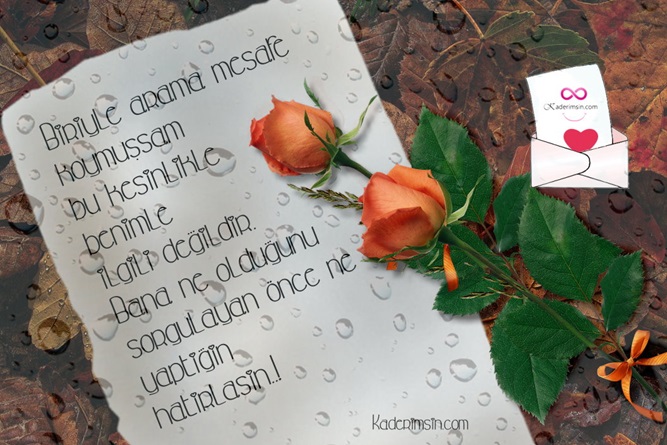 Biriyle arama mesafe
koymuşsam
bu kesinlikle
benimle
ilgili değildir.
Bana ne olduğunu
sorgulayan önce ne
yaptiğin
hatirlasin..!
Kaderimsin.com
Kaderimsin.com